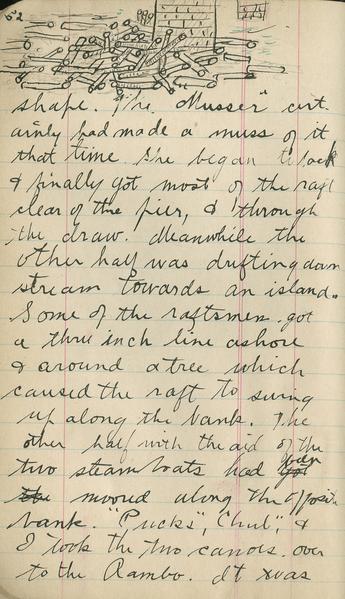 52
shape. The "Musser" cert-
ainly had made a muss of it
that time. She began to back
& finally got most of the raft
clear of the pier, & through
the draw. Meanwhile the
other half was drifting down
stream towards an island.
Some of the raftsmen got
a thru inch line ashore
& around a tree which
caused the raft to swing
up along the bank. The
other half with the aid of the
two steamboats had been
moored along the opposite
bank. "Pucks", Chul", &
I took the two canoes over
to the Rambo. It was